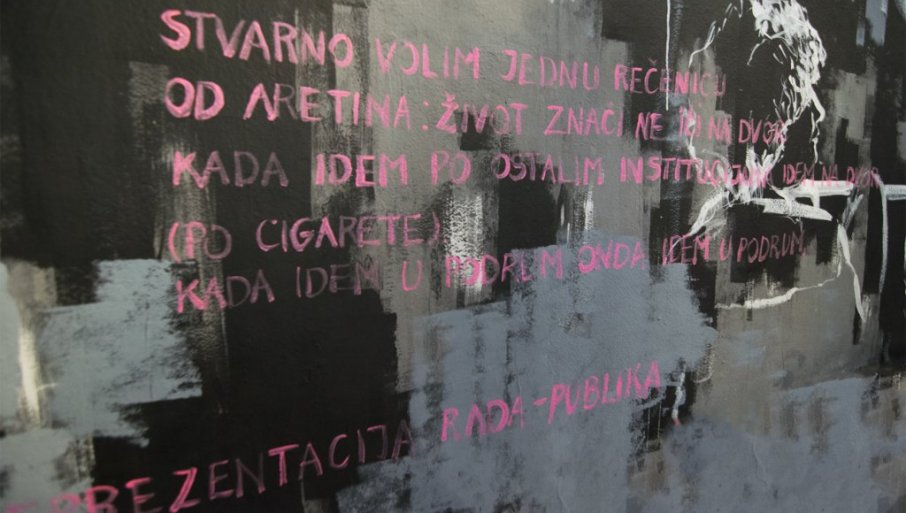 STVARNO VOLIM JEDNU REČENICU
OD ARETINA: ŽIVOT ZNAČI NE IĆI NA DVOR
KADA IDEM PO OSTALIM INSTITUCIJAMA IDEM NA DVOR
(PO CIGARETE)
KADA IDEM U PODRUM ONDA IDEM U PODRUM.
REPREZENTACIJA RADA-PUBLIKA